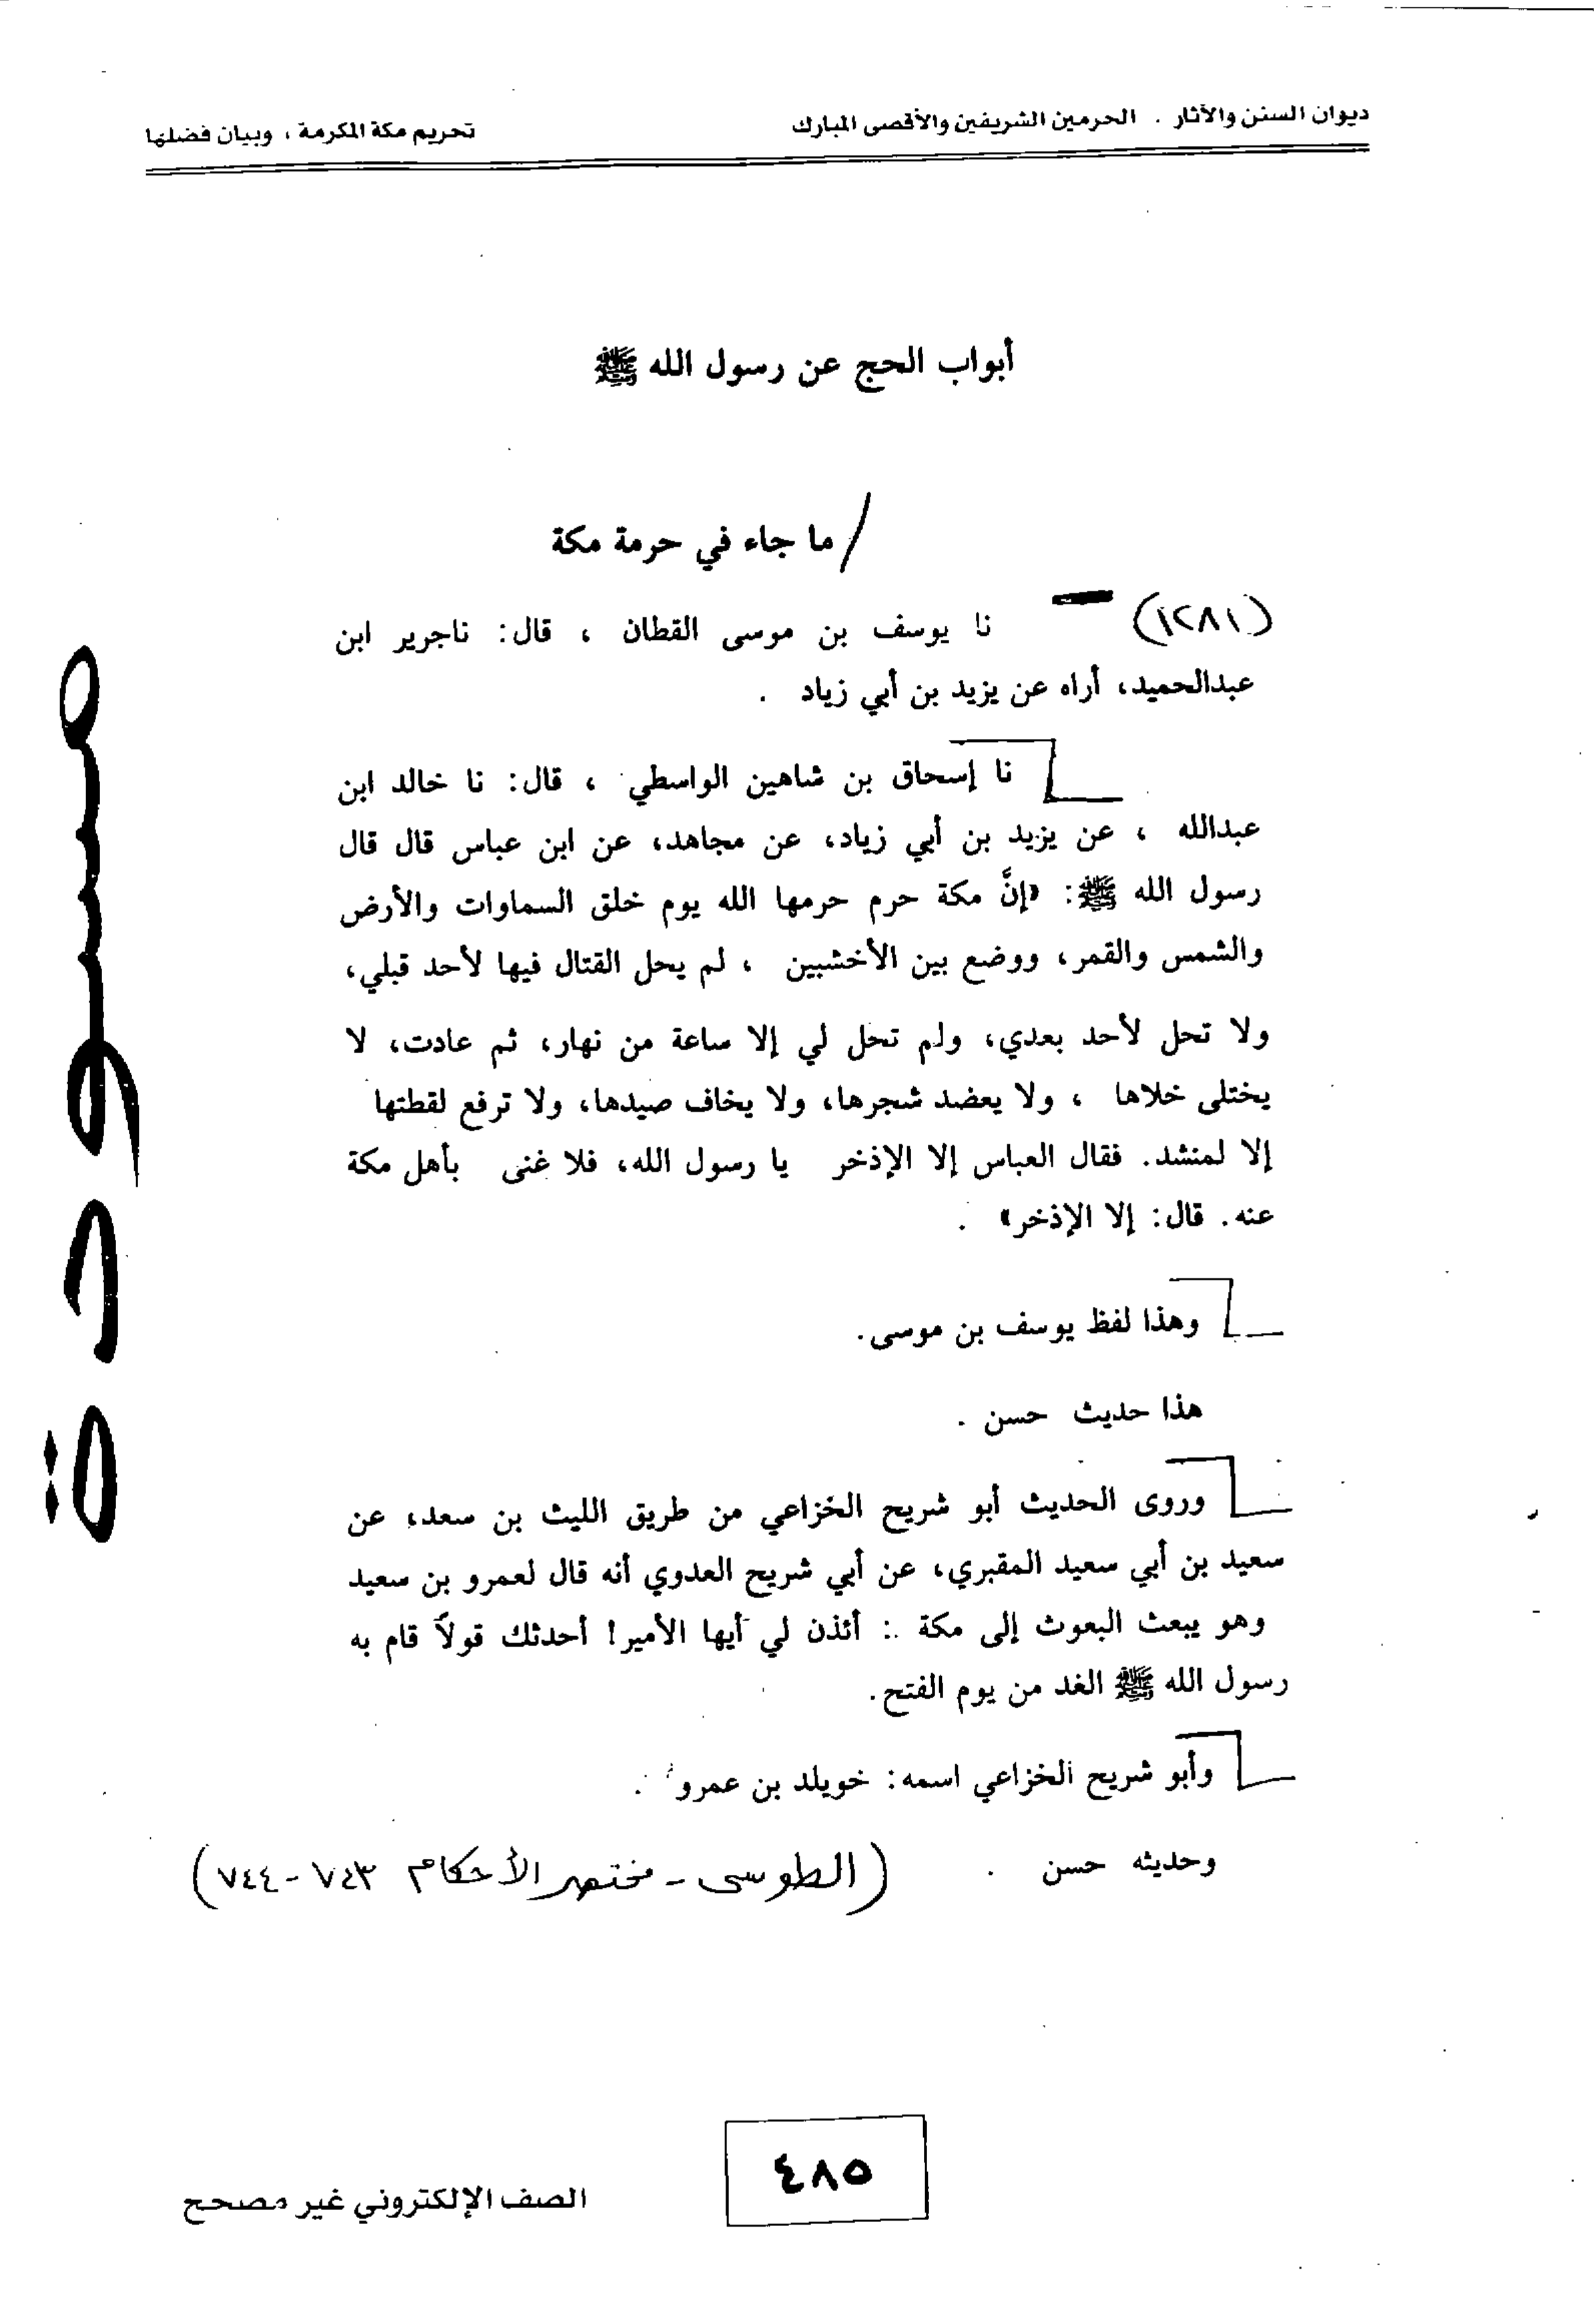 ديوان السنن والآثار . الحرمين الشريفين والأقصى المبارك
تحريم مكة المكرمة ، وبيان فضلها
أبواب الحج عن رسول الله ﷺ
/ ما جاء في حرمة مكة
(١٢٨١) نا يوسف بن موسى القطان ، قال: ناجرير ابن
عبدالحميد، أراه عن يزيد بن أبي زياد .
نا إسحاق بن شاهين الواسطي ، قال: نا خالد ابن
عبدالله ، عن يزيد بن أبي زياد، عن مجاهد، عن ابن عباس قال قال
رسول الله ﷺ: «إنَّ مكة حرم حرمها الله يوم خلق السماوات والأرض
والشمس والقمر، ووضع بين الأخشبين ، لم يحل القتال فيها لأحد قبلي،
ولا تحل لأحد بعدي، ولم تحل لي إلا ساعة من نهار، ثم عادت، لا
يختلى خلاها ، ولا يعضد شجرها، ولا يخاف صيدها، ولا ترفع لقطتها
إلا لمنشد. فقال العباس إلا الإذخر يا رسول الله، فلا غنى بأهل مكة
عنه. قال: إلا الإذخر» .
وهذا لفظ يوسف بن موسى.
هذا حديث حسن .
وروى الحديث أبو شريح الخزاعي من طريق الليث بن سعد، عن
سعيد بن أبي سعيد المقبري، عن أبي شريح العدوي أنه قال لعمرو بن سعيد
وهو يبعث البعوث إلى مكة : أئذن لي أيها الأمير! أحدثك قولاً قام به
رسول الله ﷺ الغد من يوم الفتح.
وأبو شريح الخزاعي اسمه: خويلد بن عمرو .
وحديثه حسن . (الطوسى - مختصر الأحكام ٧٤٣-٧٤٤)
مسودة
٤٨٥
الصف الإلكتروني غير مصحح